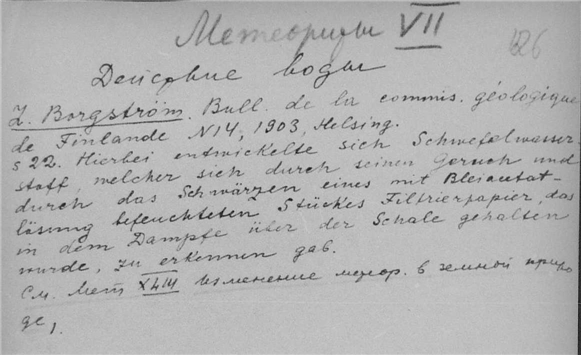 Метеориты VII
626
Действие воды
L. Borgström. Bull. de la commis. géologique
de Finlande N14, 1903, Helsing.
s 22. Hierbei entwickelte sich Schwefelwasser-
stoff, welcher sich durch seinen Geruch und
durch das Schwärzen eines mit Bleiacetat-
lösung befeuchteten Stückes Filtrierpapier, das
in dem Dampfe über der Schale gehalten
wurde, zu erkennen gab.
См. Мет XLIII Изменение метеор. в земной приро
де,